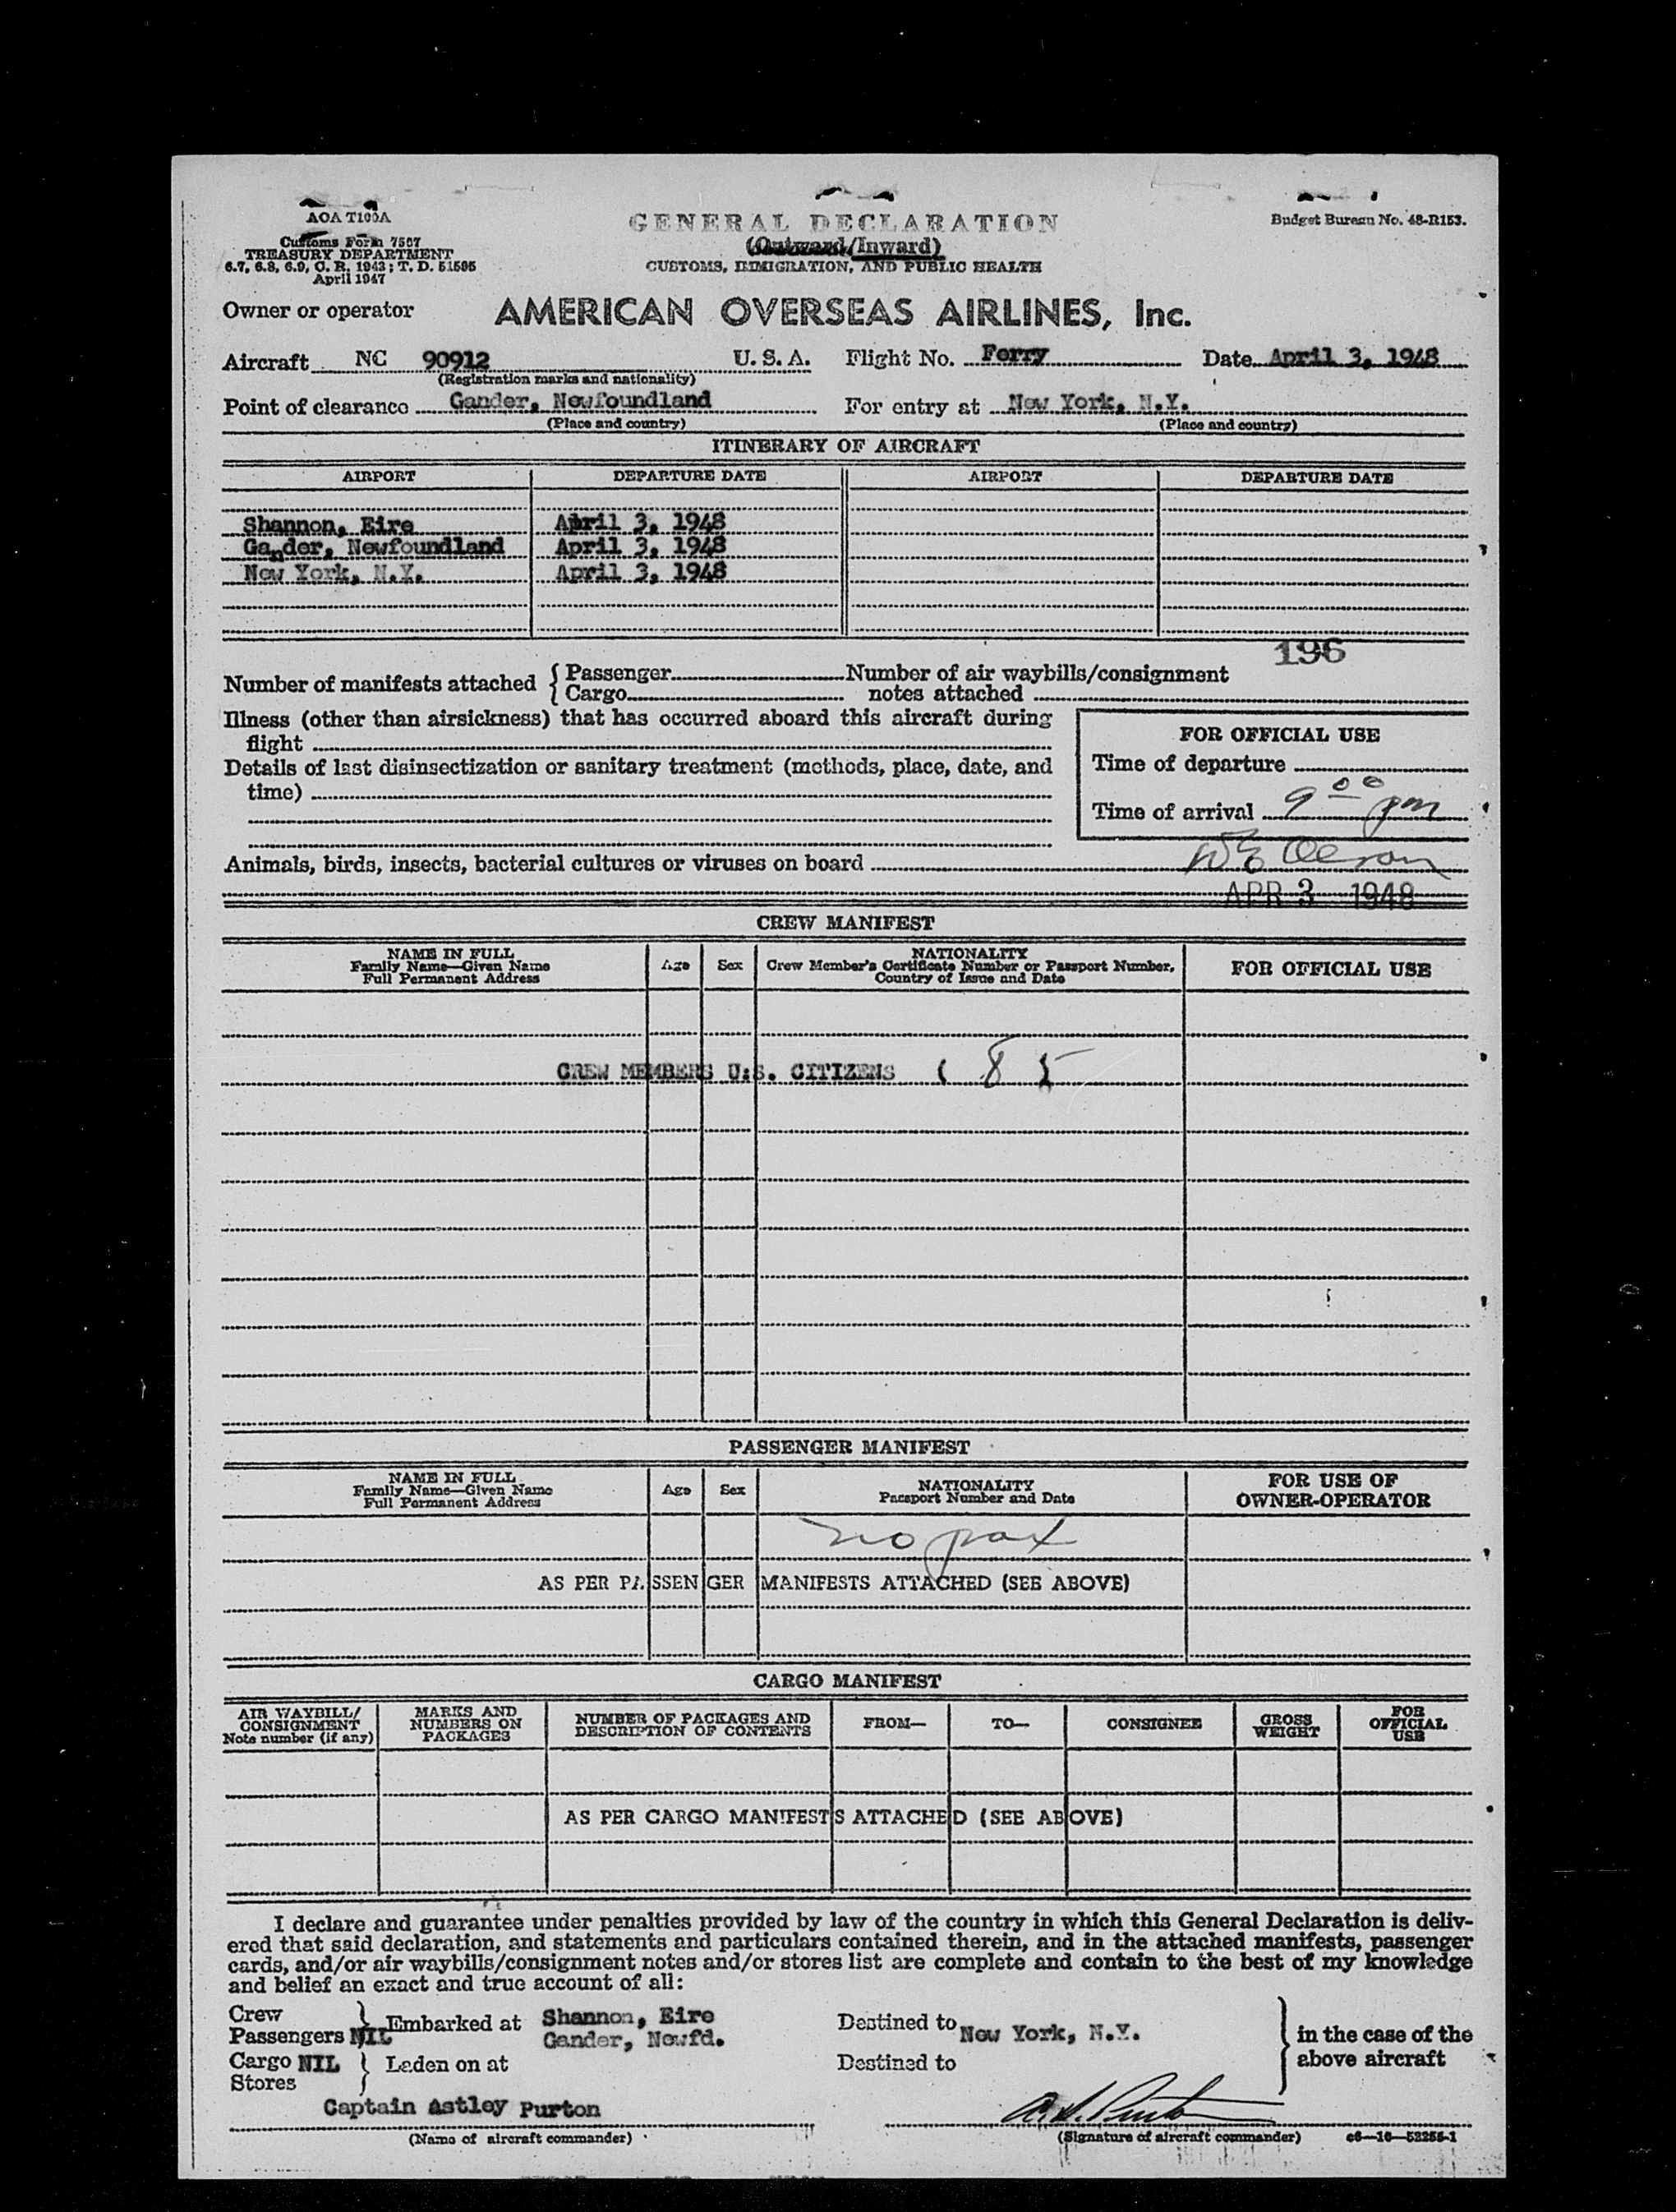 AOA T100A
Customs Form 7507
TREASURY DEPARTMENT
6.7, 6.8, 6.9, C. R. 1943; T. D. 51595
April 1947
GENERAL DECLARATION
(Outward/Inward)
CUSTOMS, IMMIGRATION, AND PUBLIC HEALTH
Budget Bureau No. 48-R153.
Owner or operator AMERICAN OVERSEAS AIRLINES, Inc.
Aircraft NC 90912 U. S. A. Flight No. Ferry Date April 3, 1948
(Registration marks and nationality)
Point of clearance Gander, Newfoundland For entry at New York, N.Y.
(Place and country) (Place and country)
ITINERARY OF AIRCRAFT
AIRPORT DEPARTURE DATE AIRPORT DEPARTURE DATE
Shannon, Eire April 3, 1948
Gander, Newfoundland April 3, 1948
New York, N.Y. April 3, 1948
196
Number of manifests attached { Passenger Number of air waybills/consignment
Cargo notes attached
Illness (other than airsickness) that has occurred aboard this aircraft during
flight
Details of last disinsectization or sanitary treatment (methods, place, date, and
time)
FOR OFFICIAL USE
Time of departure
Time of arrival 9 00 pm
Animals, birds, insects, bacterial cultures or viruses on board
APR 3 1948
CREW MANIFEST
NAME IN FULL
Family Name—Given Name
Full Permanent Address
Age
Sex
NATIONALITY
Crew Member's Certificate Number or Passport Number,
Country of Issue and Date
FOR OFFICIAL USE
CREW MEMBERS U:S. CITIZENS ( 8 )
PASSENGER MANIFEST
NAME IN FULL
Family Name—Given Name
Full Permanent Address
Age
Sex
NATIONALITY
Passport Number and Date
FOR USE OF
OWNER-OPERATOR
no pax
AS PER PASSENGER MANIFESTS ATTACHED (SEE ABOVE)
CARGO MANIFEST
AIR WAYBILL/
CONSIGNMENT
Note number (if any)
MARKS AND
NUMBERS ON
PACKAGES
NUMBER OF PACKAGES AND
DESCRIPTION OF CONTENTS
FROM—
TO—
CONSIGNEE
GROSS
WEIGHT
FOR
OFFICIAL
USE
AS PER CARGO MANIFESTS ATTACHED (SEE ABOVE)
I declare and guarantee under penalties provided by law of the country in which this General Declaration is deliv-
ered that said declaration, and statements and particulars contained therein, and in the attached manifests, passenger
cards, and/or air waybills/consignment notes and/or stores list are complete and contain to the best of my knowledge
and belief an exact and true account of all:
Crew
Passengers NIL } Embarked at Shannon, Eire
Gander, Newfd.
Destined to New York, N.Y.
Cargo NIL
Stores } Laden on at
Destined to
} in the case of the
above aircraft
Captain Astley Purton
(Name of aircraft commander)
(Signature of aircraft commander) c6—16—52256-1